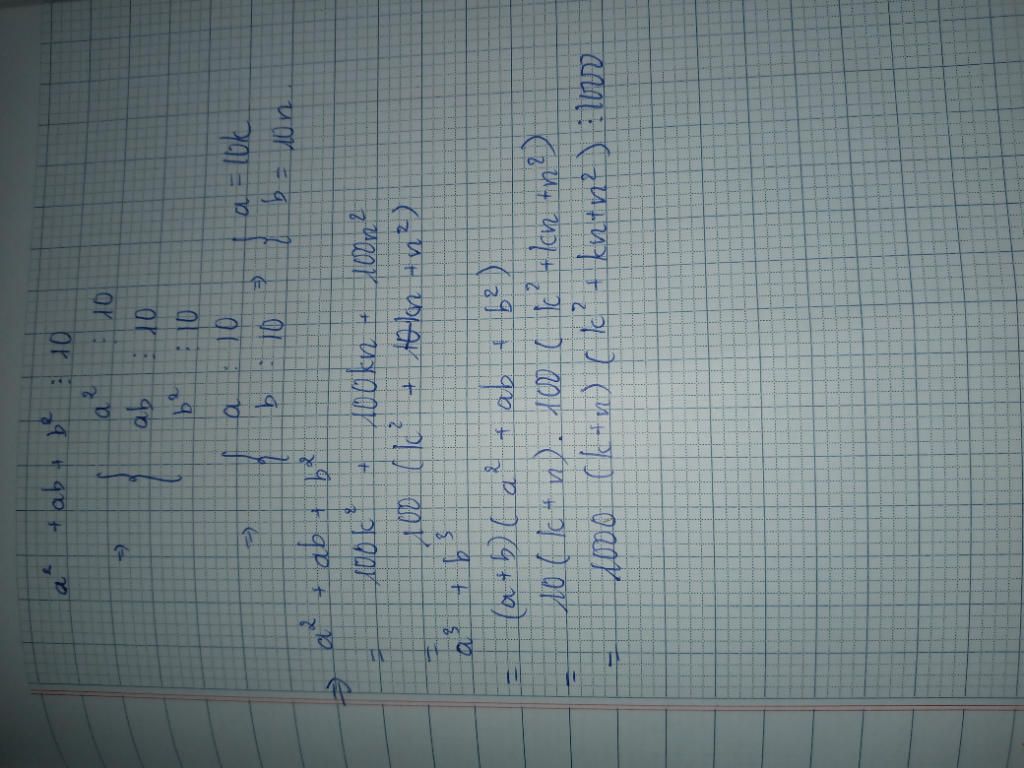 a² + ab + b² ⋮ 10
⇒ { a² ⋮ 10
ab ⋮ 10
b² ⋮ 10
⇒ { a ⋮ 10
b ⋮ 10 ⇒ { a = 10k
b = 10n.
⇒ a² + ab + b²
= 100k² + 100kn + 100n²
= 100 (k² + kn + n²)
a³ + b³
= (a+b)(a² + ab + b²)
= 10(k+n). 100(k² + kn + n²)
= 1000 (k+n) (k² + kn + n²) ⋮ 1000